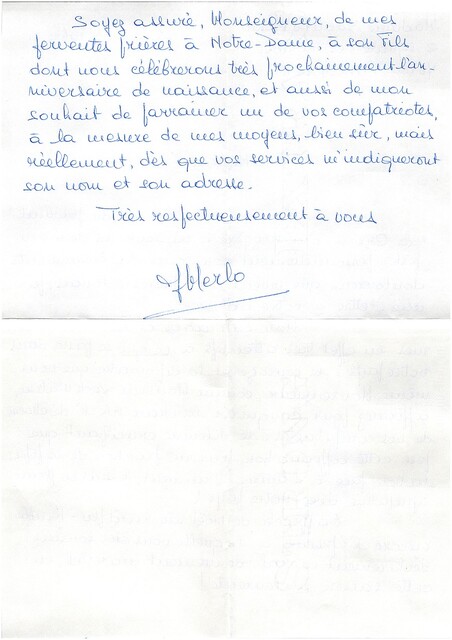 Soyez assuré, Monseigneur, de mes
ferventes prières à Notre-Dame, à son Fils
dont nous célébrerons très prochainement l'an-
niversaire de naissance, et aussi de mon
souhait de parrainer un de vos compatriotes,
à la mesure de mes moyens, bien sûr, mais
réellement, dès que vos services m'indiqueront
son nom et son adresse.
Très respectueusement à vous